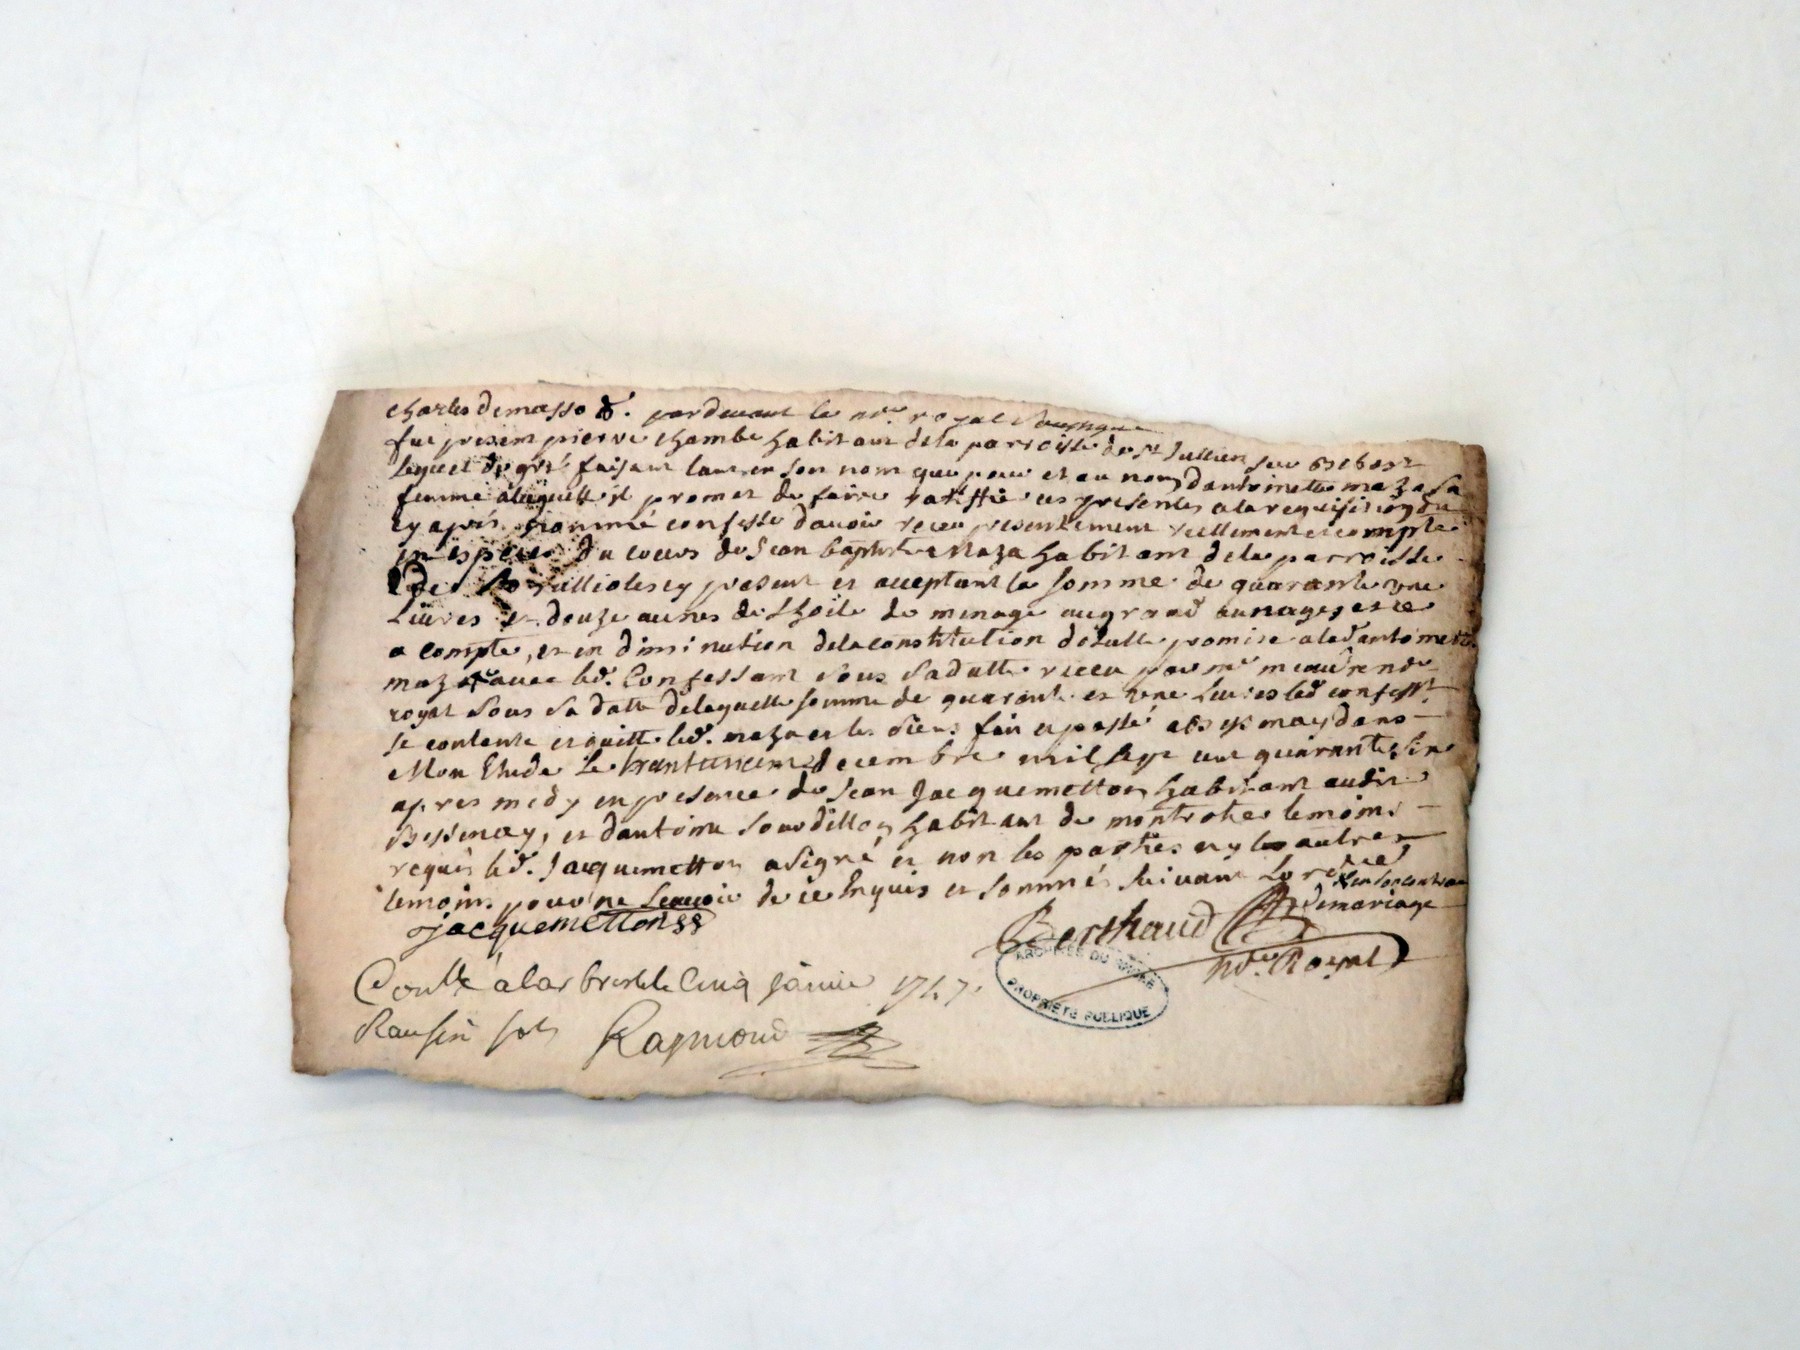 charles demasso &. pardevant le nore. royal soussigné
fut present pierre chambe habitant dela parroisse de st Jullien sur Bibost
lequel de gré faisant tant en son nom que pour et au nom dantoinette maza sa
femme alaquelle il promet de faire ratiffié ces presentes ala requisition du
cy aprés nommé confesse davoir receu presentement reellement et comptes
en especes du cours de Jean baptiste Maza habitant dela parroisse
de cy present et acceptant la somme de quarante une
Livres et douze aunes de thoile de menage au grand aunages et ce
a compte, et en diminution dela constitution dotalle promise alad antoinette
maza avec led. Confessant sous sa datte receu par me
royal sous sa datte delaquelle somme de quarante et une Livres led confesst
se contente et quitte led. maza et les siens fait et passé
Mon Etude Le decembre mil sept cent quarante six
apres midy en presence de Jean Jacquemetton habitant audit
Bessenay, et dantoine Sourdillon habitant de montrotier temoins
requis led. Jacquemetton a signé et non les parties ny les autres
temoins pour ne scavoir de ce Enquis et sommés suivant Lordce
demariage
Jacquemetton
Berthaud
nore Royal
ARCHIVES DU RHÔNE
PROPRIÉTÉ PUBLIQUE
Conllé alarbresle le Cinq janvier 1747.
Raymond